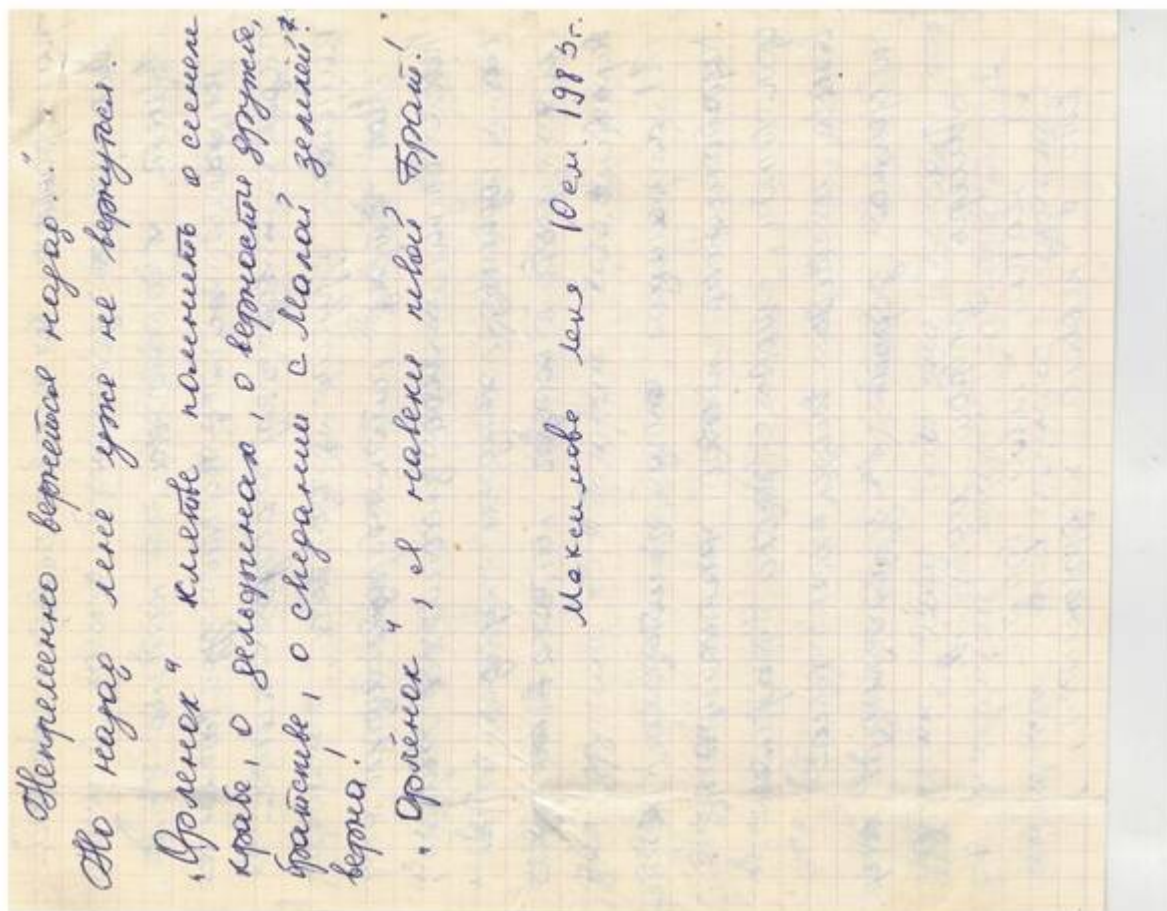 Непременно вернется назад."
Но назад мне уже не вернуться!
„Орленок" клятве помнить о синем
крабе, о дельфинах, о верности дружбе,
братстве, о свидании с Малой землёй
верна!
„Орлёнок", я навеки твой Брат!
Максимова Лена 10 см. 1983г.